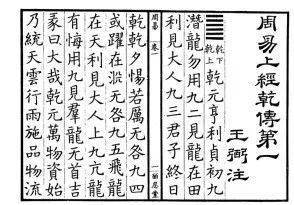 周易上經乾傳第一
王弼注
乾下
乾上
乾元亨利貞初九
潛龍勿用九二見龍在田
利見大人九三君子終日
周易 卷一
一
乾乾夕惕若厲无咎九四
或躍在淵无咎九五飛龍
在天利見大人上九亢龍
有悔用九見羣龍无首吉
彖曰大哉乾元萬物資始
乃統天雲行雨施品物流